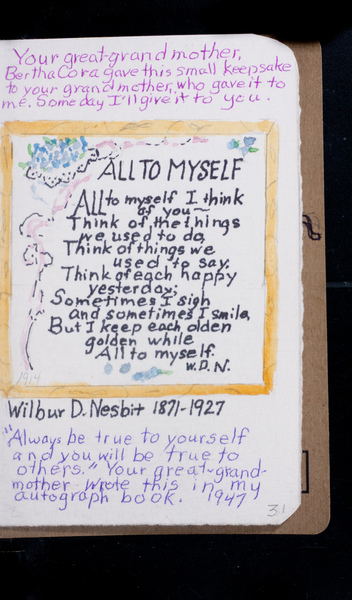 Your great-grandmother,
Bertha Cora gave this small keepsake
to your grandmother, who gave it to
me. Someday I'll give it to you.
ALL TO MYSELF
All to myself I think
of you~
Think of the things
we used to do,
Think of things we
used to say,
Think of each happy
yesterday;
Sometimes I sigh
and sometimes I smile,
But I keep each olden
golden while
All to myself.
W.D.N.
1914
Wilbur D. Nesbit 1871-1927
"Always be true to yourself
and you will be true to
others." Your great-grand-
mother wrote this in my
autograph book. 1947
31